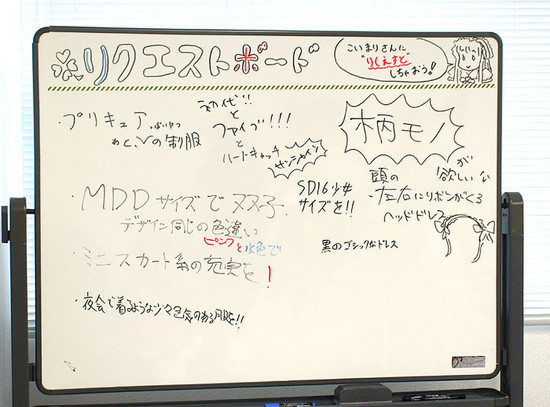 リクエストボード
こいまりさんに
"りくえすと"
しちゃおう!!
・プリキュア
の制服
初代!!
と
ファイブ!!!
と
ハートキャッチ
柄モノ
が
欲しいな
・MDDサイズで双子
デザイン同じの色違い
ピンクと水色で
SD16少女
サイズを!!
頭の
左右にリボンがくる
ヘッドドレス
ミニスカート系の充実を!
黒のゴシックなドレス
・夜会で着るような少々色気のある服を!!